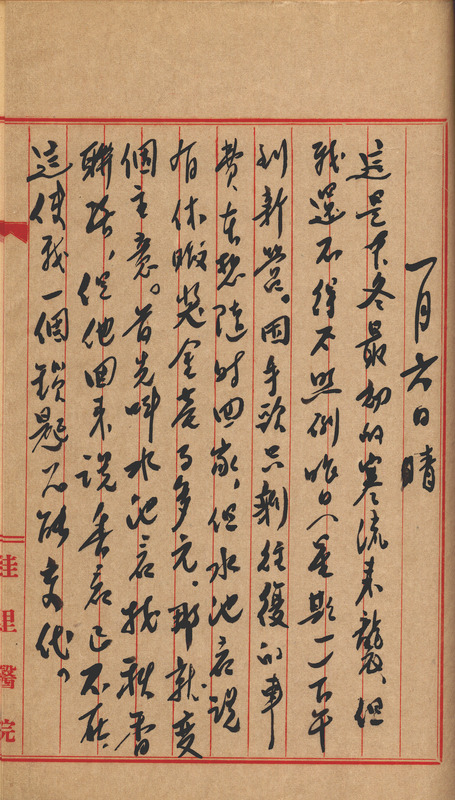 一月六日 晴
這是本冬最初的寒流来襲、但
我還不得不照例昨日(星期一)下午
到新營。因手頭只剩往復的車
費、本想隨时回家，但水池君說
有休暇獎金壹百多元，那就变
個主意。首先叫水池君找秋香
聯絡，但他回来說香君已不在，
這使我一個難題不能交代。
佳里醫院